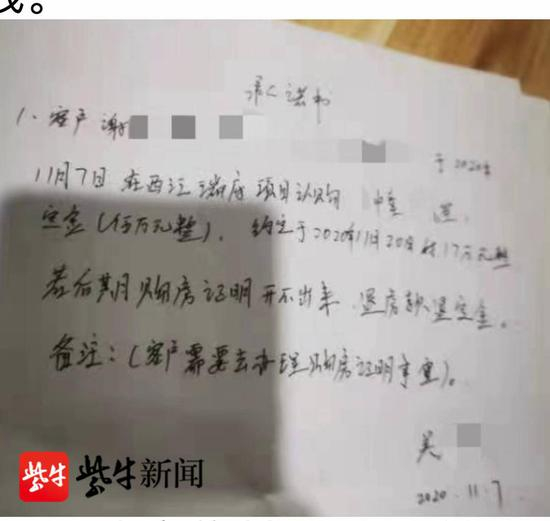 承诺书
1、客户谢 于2020年
11月7日在西江瑞府项目认购
定金(伍万元整),约定于2020年11月20日 17万元整
若后期购房证明开不出来,退房款退定金。
备注:(客户需要去办理购房证明事宜)。
吴
2020.11.7
紫牛 紫牛新闻